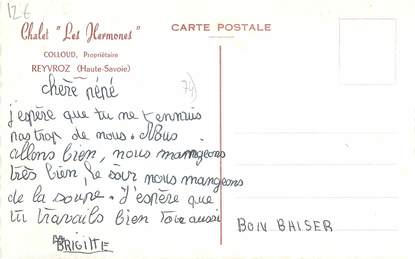 12€
Chalet "Les Hermones"
COLLOUD, Propriétaire
REYVROZ (Haute-Savoie)
CARTE POSTALE
74)
chère néné
j'espère que tu ne t'ennuis
pas trop de nous. Nous
allons bien, nous mamgeons
très bien, le soir nous mangeons
de la soupe. J'espère que
tu travails bien toi aussi
BRIGITTE
BON BAISER